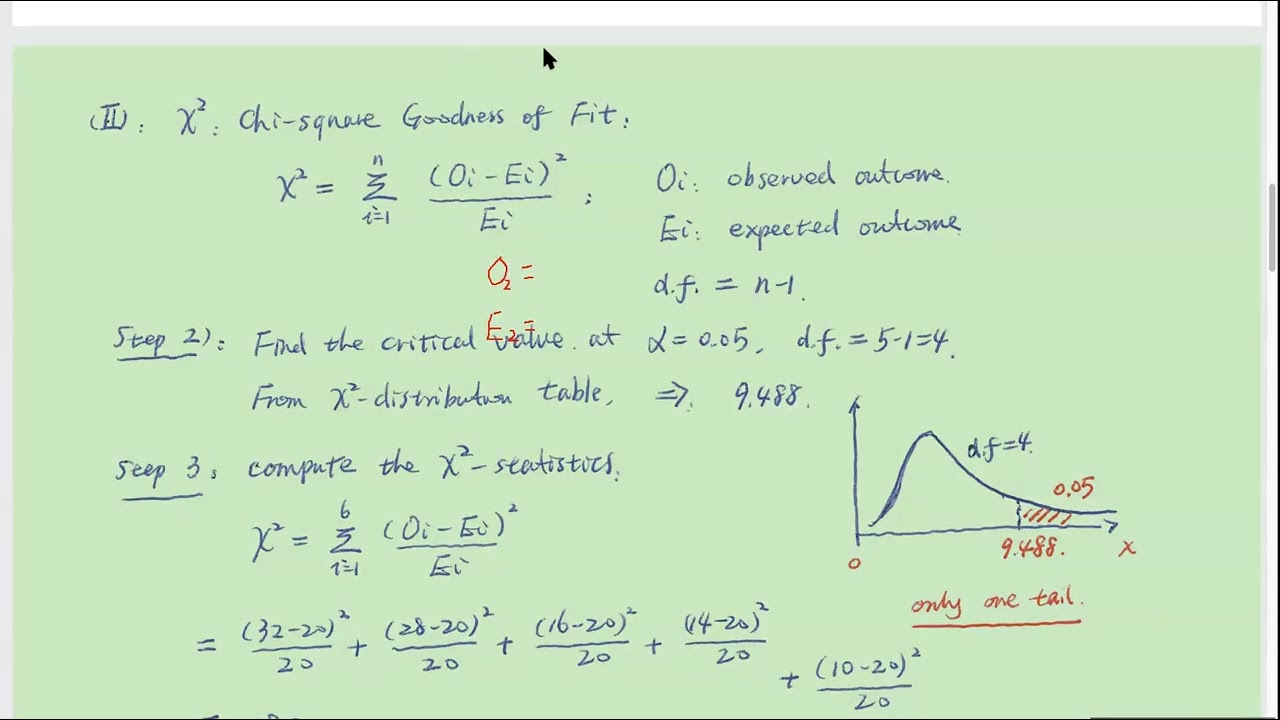 (II): χ²: Chi-square Goodness of Fit:
χ² = n Σ i=1 (Oi - Ei)² / Ei ; Oi: observed outcome.
Ei: expected outcome.
O₂ =
d.f. = n-1.
E₂ =
Step 2): Find the critical value. at α = 0.05, d.f. = 5-1=4.
From χ²-distribution table, ⇒ 9.488.
d.f=4.
Step 3: compute the χ²-statistics.
0.05
χ² = 6 Σ i=1 (Oi - Ei)² / Ei
9.488. x
0
only one tail.
= (32-20)² / 20 + (28-20)² / 20 + (16-20)² / 20 + (14-20)² / 20
+ (10-20)² / 20